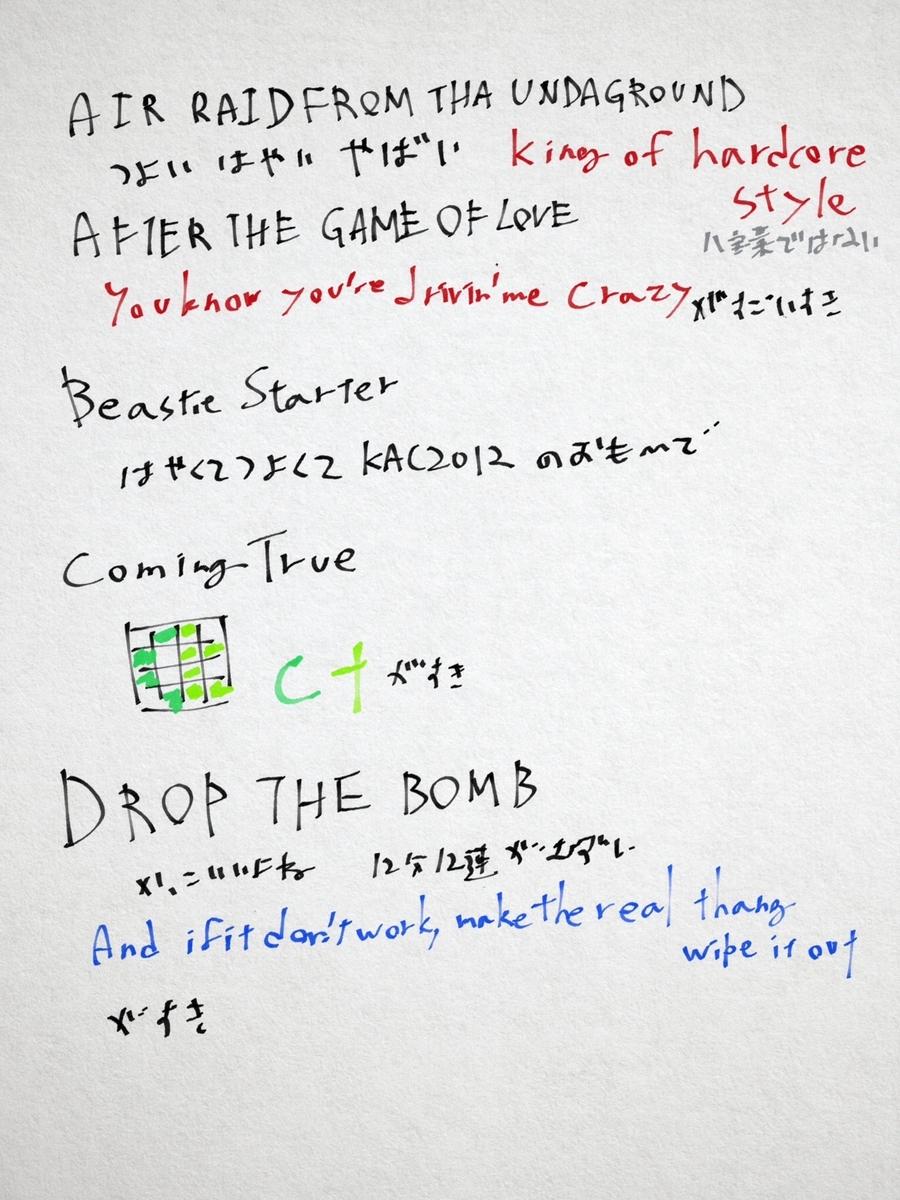 AIR RAID FROM THA UNDAGROUND
つよい はやい やばい king of hardcore
style
八宝菜ではない
AFTER THE GAME OF LOVE
You know you're drivin' me crazy がだいすき
Beastie Starter
はやくてつよくて KAC2012 のおもいで
Coming True
CT がすき
DROP THE BOMB
かっこいいよね 12分12連が
And if it don't work, make the real thang
wipe it out
がすき